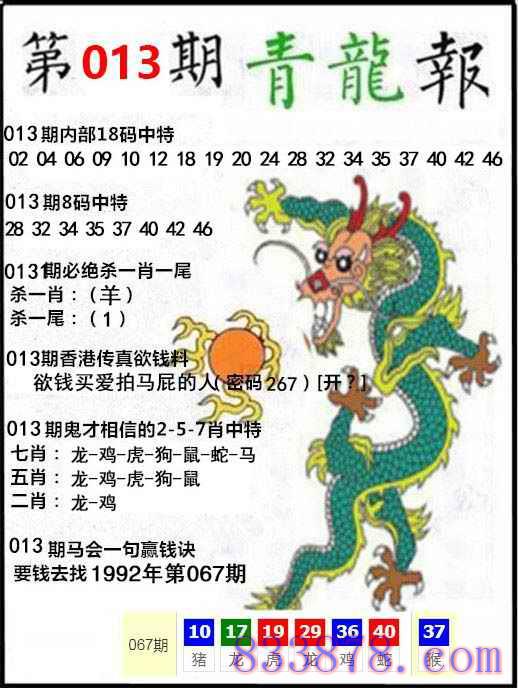 第013期青龍報
013期内部18码中特
02 04 06 09 10 12 18 19 20 24 28 32 34 35 37 40 42 46
013期8码中特
28 32 34 35 37 40 42 46
013期必绝杀一肖一尾
杀一肖：（羊）
杀一尾：（1）
013期香港传真欲钱料
欲钱买爱拍马屁的人（密码267）[开？]
013期鬼才相信的2-5-7肖中特
七肖：龙-鸡-虎-狗-鼠-蛇-马
五肖：龙-鸡-虎-狗-鼠
二肖：龙-鸡
013期马会一句赢钱诀
要钱去找1992年第067期
067期 10 17 19 29 36 40 37
猪 龙 虎 龙 鸡 蛇 猴
833878.com